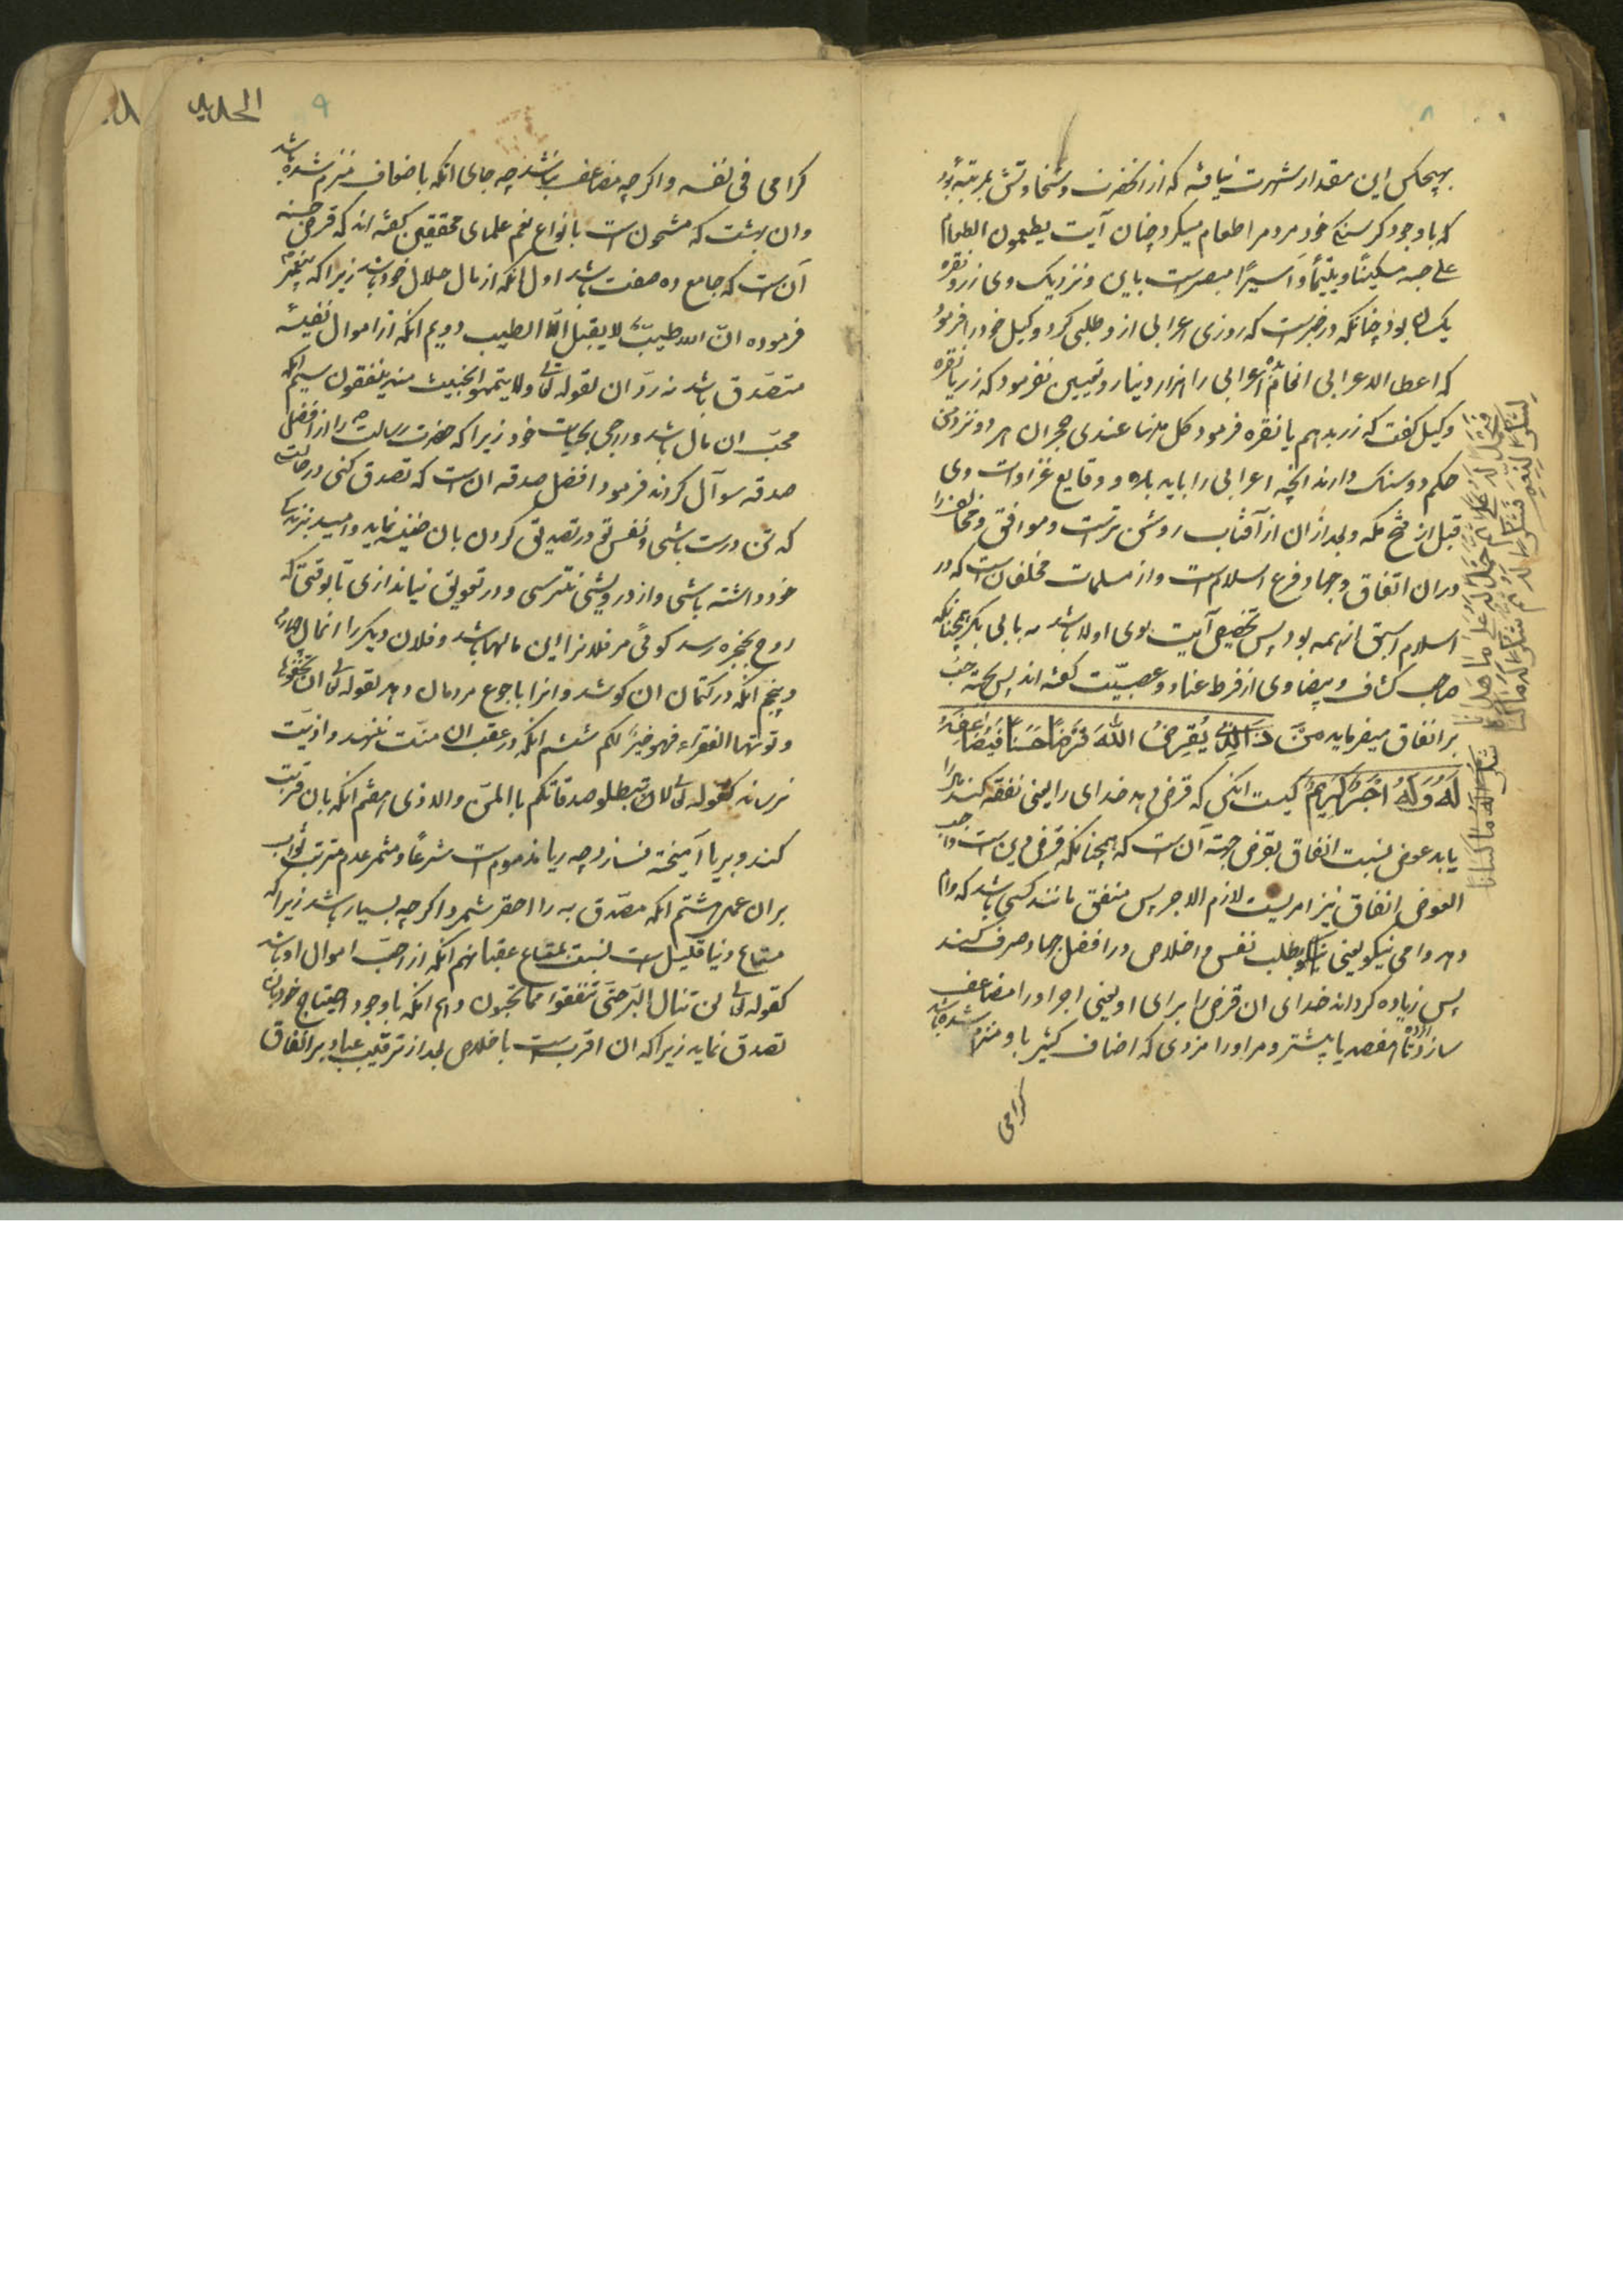 هیچکس این مقدار شهرت نیافته که از آنحضرت و سخاوتش بمرتبه بود
که با وجود کرسنکی خود مردم را اطعام میکرد چنان آیت یطعمون الطعام
علی حبه مسکینًا ویتیمًا وَاسیرًا مبصرست باین و نزدیک وی زر و نقره
یکسان بود چنانکه در خبرست که روزی اعرابی ازو طلبی کرد وکیل خود را فرمود
که اعط الاعرابی انعام اعرابی را هزار دینار و تعیین نفرمود که زر یا نقره
وکیل کفت که زر بدهم یا نقره فرمود کل منهما عندی حجران هر دو نزد من
حکم دو سنک دارند آنچه اعرابی را باید بده و وقایع غزاوات وی
قبل از فتح مکه و بعد از آن از آفتاب روشن ترست و موافق و مخالف را
در ان اتفاق و جهاد فرع اسلام است و از مسلمات مخلفان است که در
اسلام اسبق از همه بود پس تخصیص آیت بوی اولا باشد نه بابی بکر چنانکه
صاحب کشاف و بیضاوی از فرط عناد و عصبیّت کفته اند پس بجهة حث
بر انفاق میفرماید مَنْ ذَا الَّذِی یُقْرِضُ اللهَ قَرْضًا حَسَنًا فَیُضَاعِفَهُ
لَهُ وَلَهُ اَجْرٌ کَرِیمٌ کیست انکس که قرض دهد خدای را یعنی نفقه کند مال را
باید عوض نسبت انفاق بقرض جهة آن است که همچنانکه قرض دین است واجب
العوض انفاق نیز امریست لازم الاجر پس منفق مانند کسی باشد که وام
دهد وامی نیکو یعنی نیکو بطلب نفس و اخلاص در افضل جهاد صرف کند
پس زیاده کرداند خدای ان قرض را برای او یعنی اجر او را مضاعف
سازد تا هفصد یا بیشتر و مر او را مزدی که اضعاف کثیر با و منضم شده باشد
کرامی
الحدید
۹
کرامی فی نفسه و اکر چه مضاعف نباشد چه جای انکه باضعاف منضم شده باشد
وان بهشت که مشحون است بانواع نعم علمای محققین کفته اند که قرض حسنه
آن است که جامع ده صفت باشد اول انکه از مال حلال خود باشد زیرا که پیغمبر
فرموده انّ الله طیبٌ لا یقبل الّا الطیب دویم انکه از اموال نفیسه
متصدق باشد نه ردّ ان لقوله تعالی ولا یتمموا الخبیث منه ینفقون سیم انکه
محبّ ان مال باشد و راجی بحیات خود زیرا که حضرت رسالت را از افضل
صدقه سوآل کردند فرمود افضل صدقه ان است که تصدق کنی در حالت
که تن درست باشی و نفس تو در تصدیق کردن بان ضنّه نماید و امید بزندکی
خود داشته باشی و از درویشی بترسی و در تعویق نیاندازی تا بوقتی که
روح بحنجره رسد کوئی مر فلانرا این مالها باشد و فلان دیکر را انمال چهارم
و پنجم انکه در کتمان ان کوشد و انرا باجوع مردمان دهد لقوله تعالی ان تخفوها
و توتوها الفقراء فهو خیرٌ لکم ششم انکه در عقب ان منّت ننهد و اذیّت
نرساند کقوله تعالی لا تبطلو صدقاتکم بالمنّ والاذی هفتم انکه بان قربت
کند و بریا آمیخته نسازد چه ریا مذموم است شرعًا و مثمر عدم ترتب ثواب
بران عمل هشتم انکه مصّدق به را احقر شمرد اکر چه بسیار باشد زیرا که
متاع دنیا قلیل است نسبت بمتاع عقبا نهم انکه از احبّ اموال او باشد
کقوله تعالی لن تنال البرّ حتّی تنفقوا مما تحبون دهم انکه با وجود احتیاج خود بان
تصدق نماید زیرا که ان اقرب است باخلاص بعد از ترغیب عباد بر انفاق